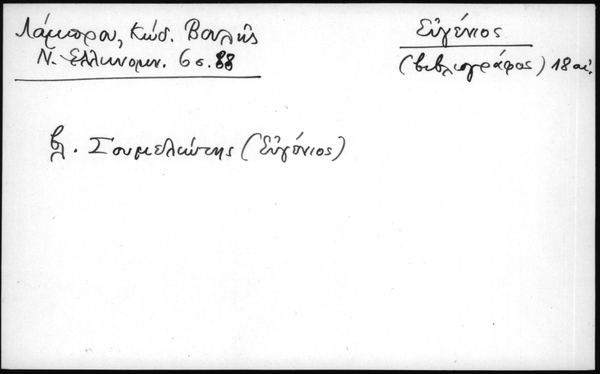 Λάμπρου, Κώδ. Βουλῆς
Ν. Ἑλληνομν. 6 σ. 88
Εὐγένιος
(βιβλιογράφος) 18 αἰ.
βλ. Σουμελιώτης (Εὐγένιος)